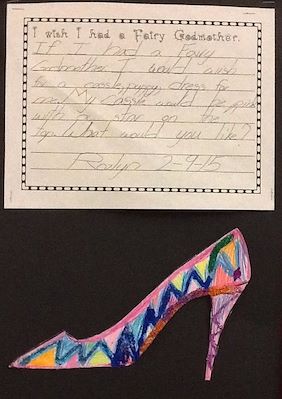 I wish I had a Fairy Godmother.
If I had a Fairy
Godmother I would wish
for a cassle, puppy, dress for
me. My cassle would be pink
with a star on the
top. What would you like?
Roslyn 2-9-15